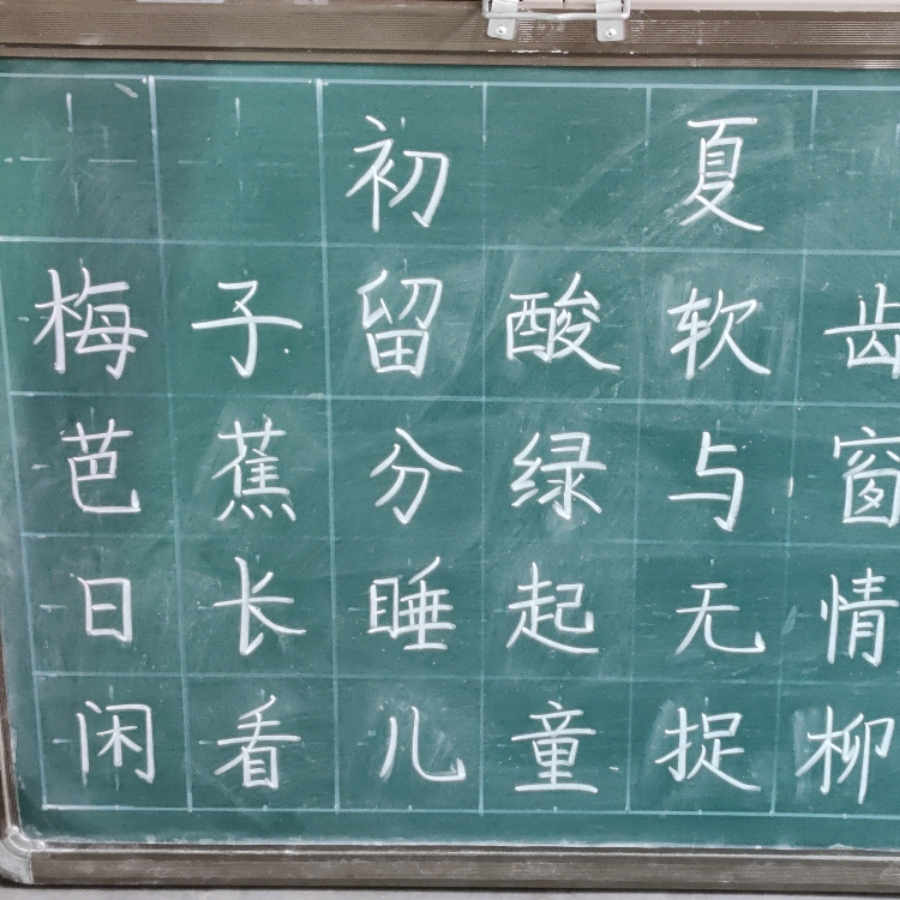 初夏
梅子留酸软齿
芭蕉分绿与窗
日长睡起无情
闲看儿童捉柳